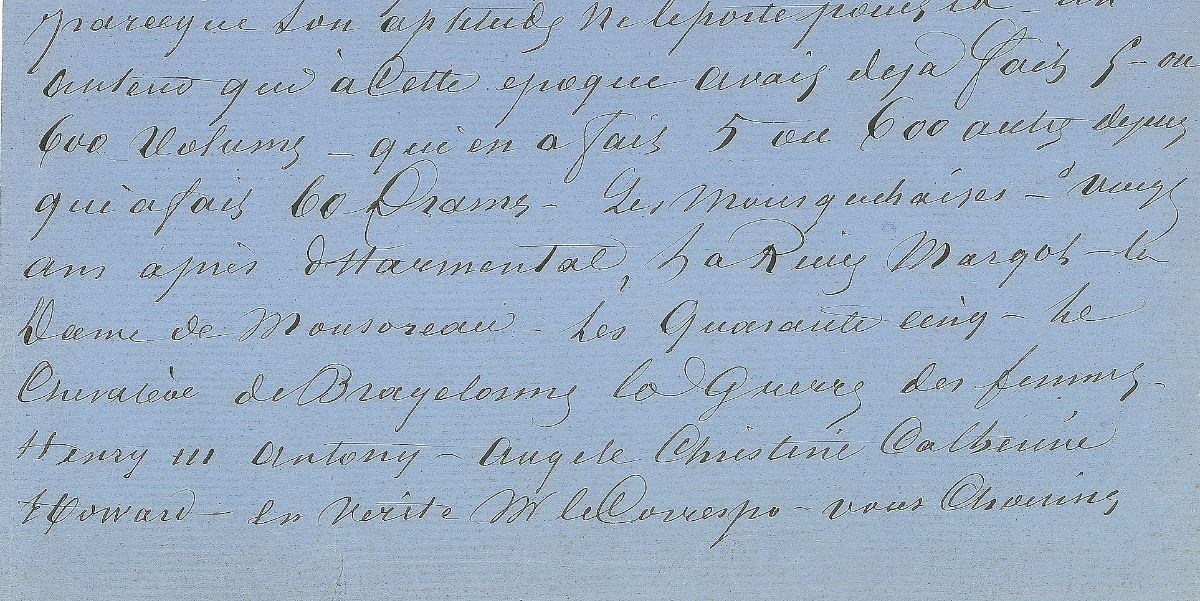 parceque son aptitude ne le porte pour la - un
auteur qui à cette epoque avais deja fait 5 - ou
600 Volumes - qui en a fait 5 ou 600 autres depuis
qui a fait 60 Drames - Les Mousquetaires - Vingt
ans après d'Harmental, La Reine Margot - la
Dame de Monsoreau - Les Quarante cinq - Le
de Bragelonne la Guerre des femmes -
Henry III Antony - Angele Christine Catherine
Howard - en verité Mr le Correspo - vous